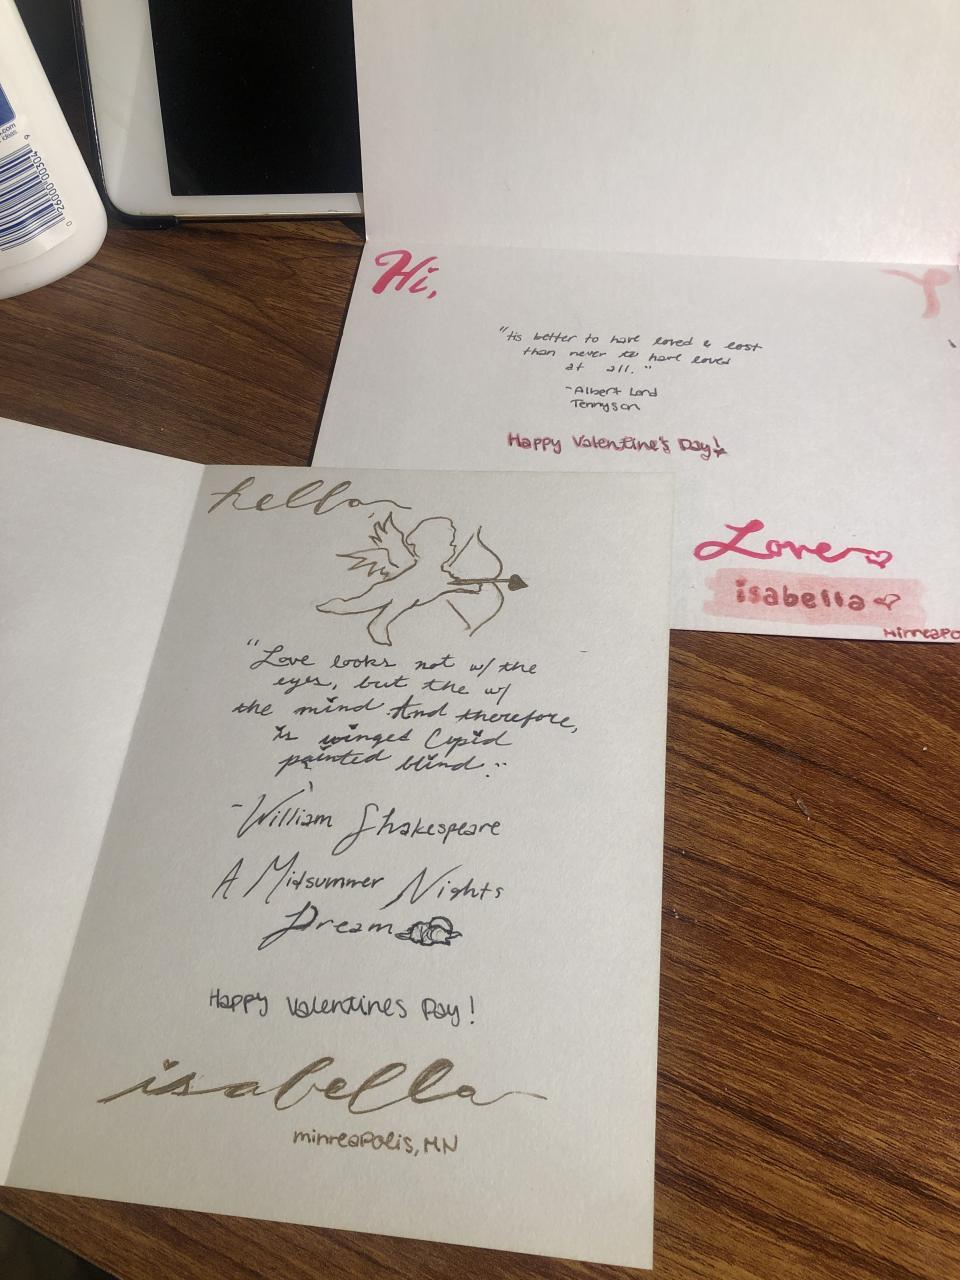 Hi,
"tis better to have loved & lost
than never to have loved
at all."
-Albert Lord
Tennyson
Happy Valentine's Day!
Love
isabella
Minneapo
hello,
"Love looks not w/ the
eyes, but the w/
the mind. And therefore,
is winged Cupid
painted blind."
-William Shakespeare
A Midsummer Nights
Dream
Happy Valentines Day!
isabella
minneapolis, MN
0 26000 00304 6
.com